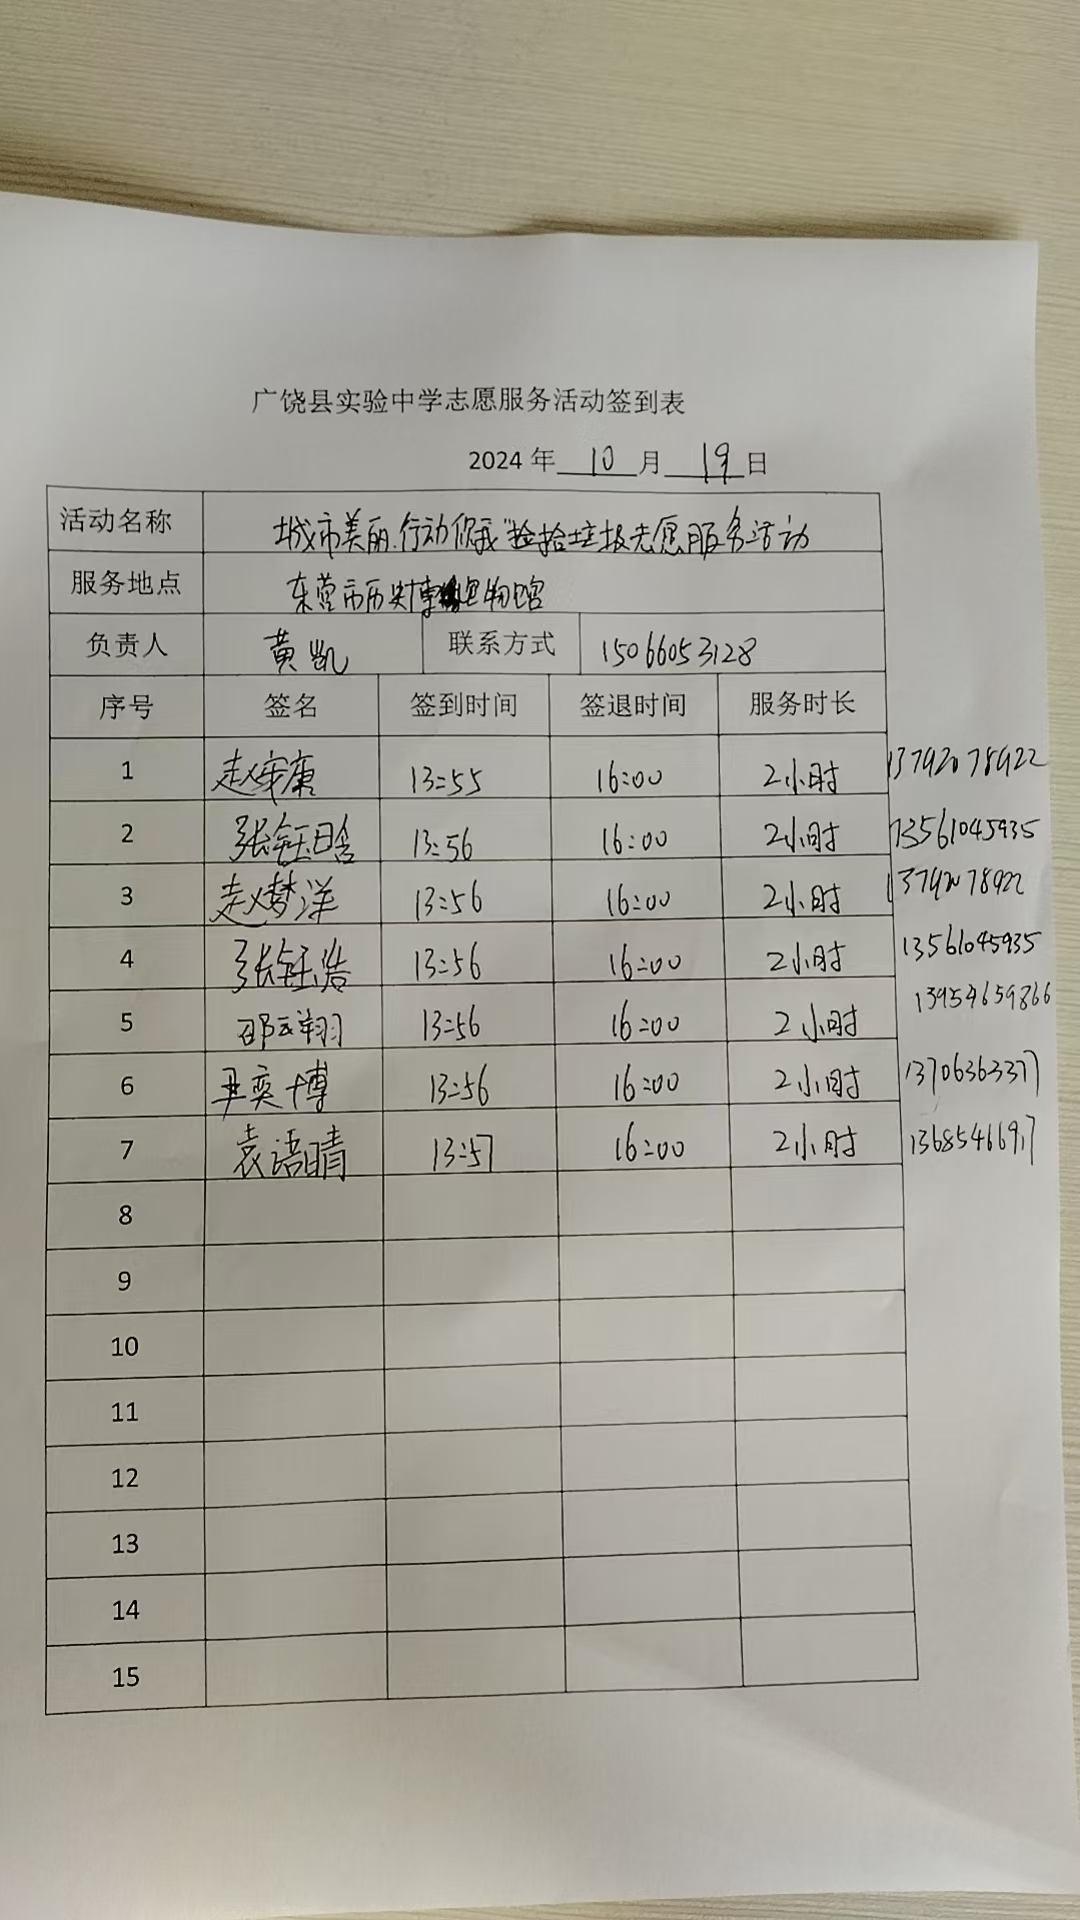 广饶县实验中学志愿服务活动签到表
2024 年 10 月 19 日
活动名称 城市美丽.行动你我"捡拾垃圾志愿服务活动
服务地点 东营市历史博物馆
负责人 黄凯 联系方式 15066053128
序号 签名 签到时间 签退时间 服务时长
1 赵 康 13:55 16:00 2小时 13792078922
2 张钰晗 13:56 16:00 2小时 13561045935
3 赵梦洋 13:56 16:00 2小时 13792078922
4 张钰浩 13:56 16:00 2小时 13561045935
5 邵云翔 13:56 16:00 2小时 13954659866
6 尹奕博 13:56 16:00 2小时 13706363377
7 袁语晴 13:57 16:00 2小时 13685466917
8
9
10
11
12
13
14
15